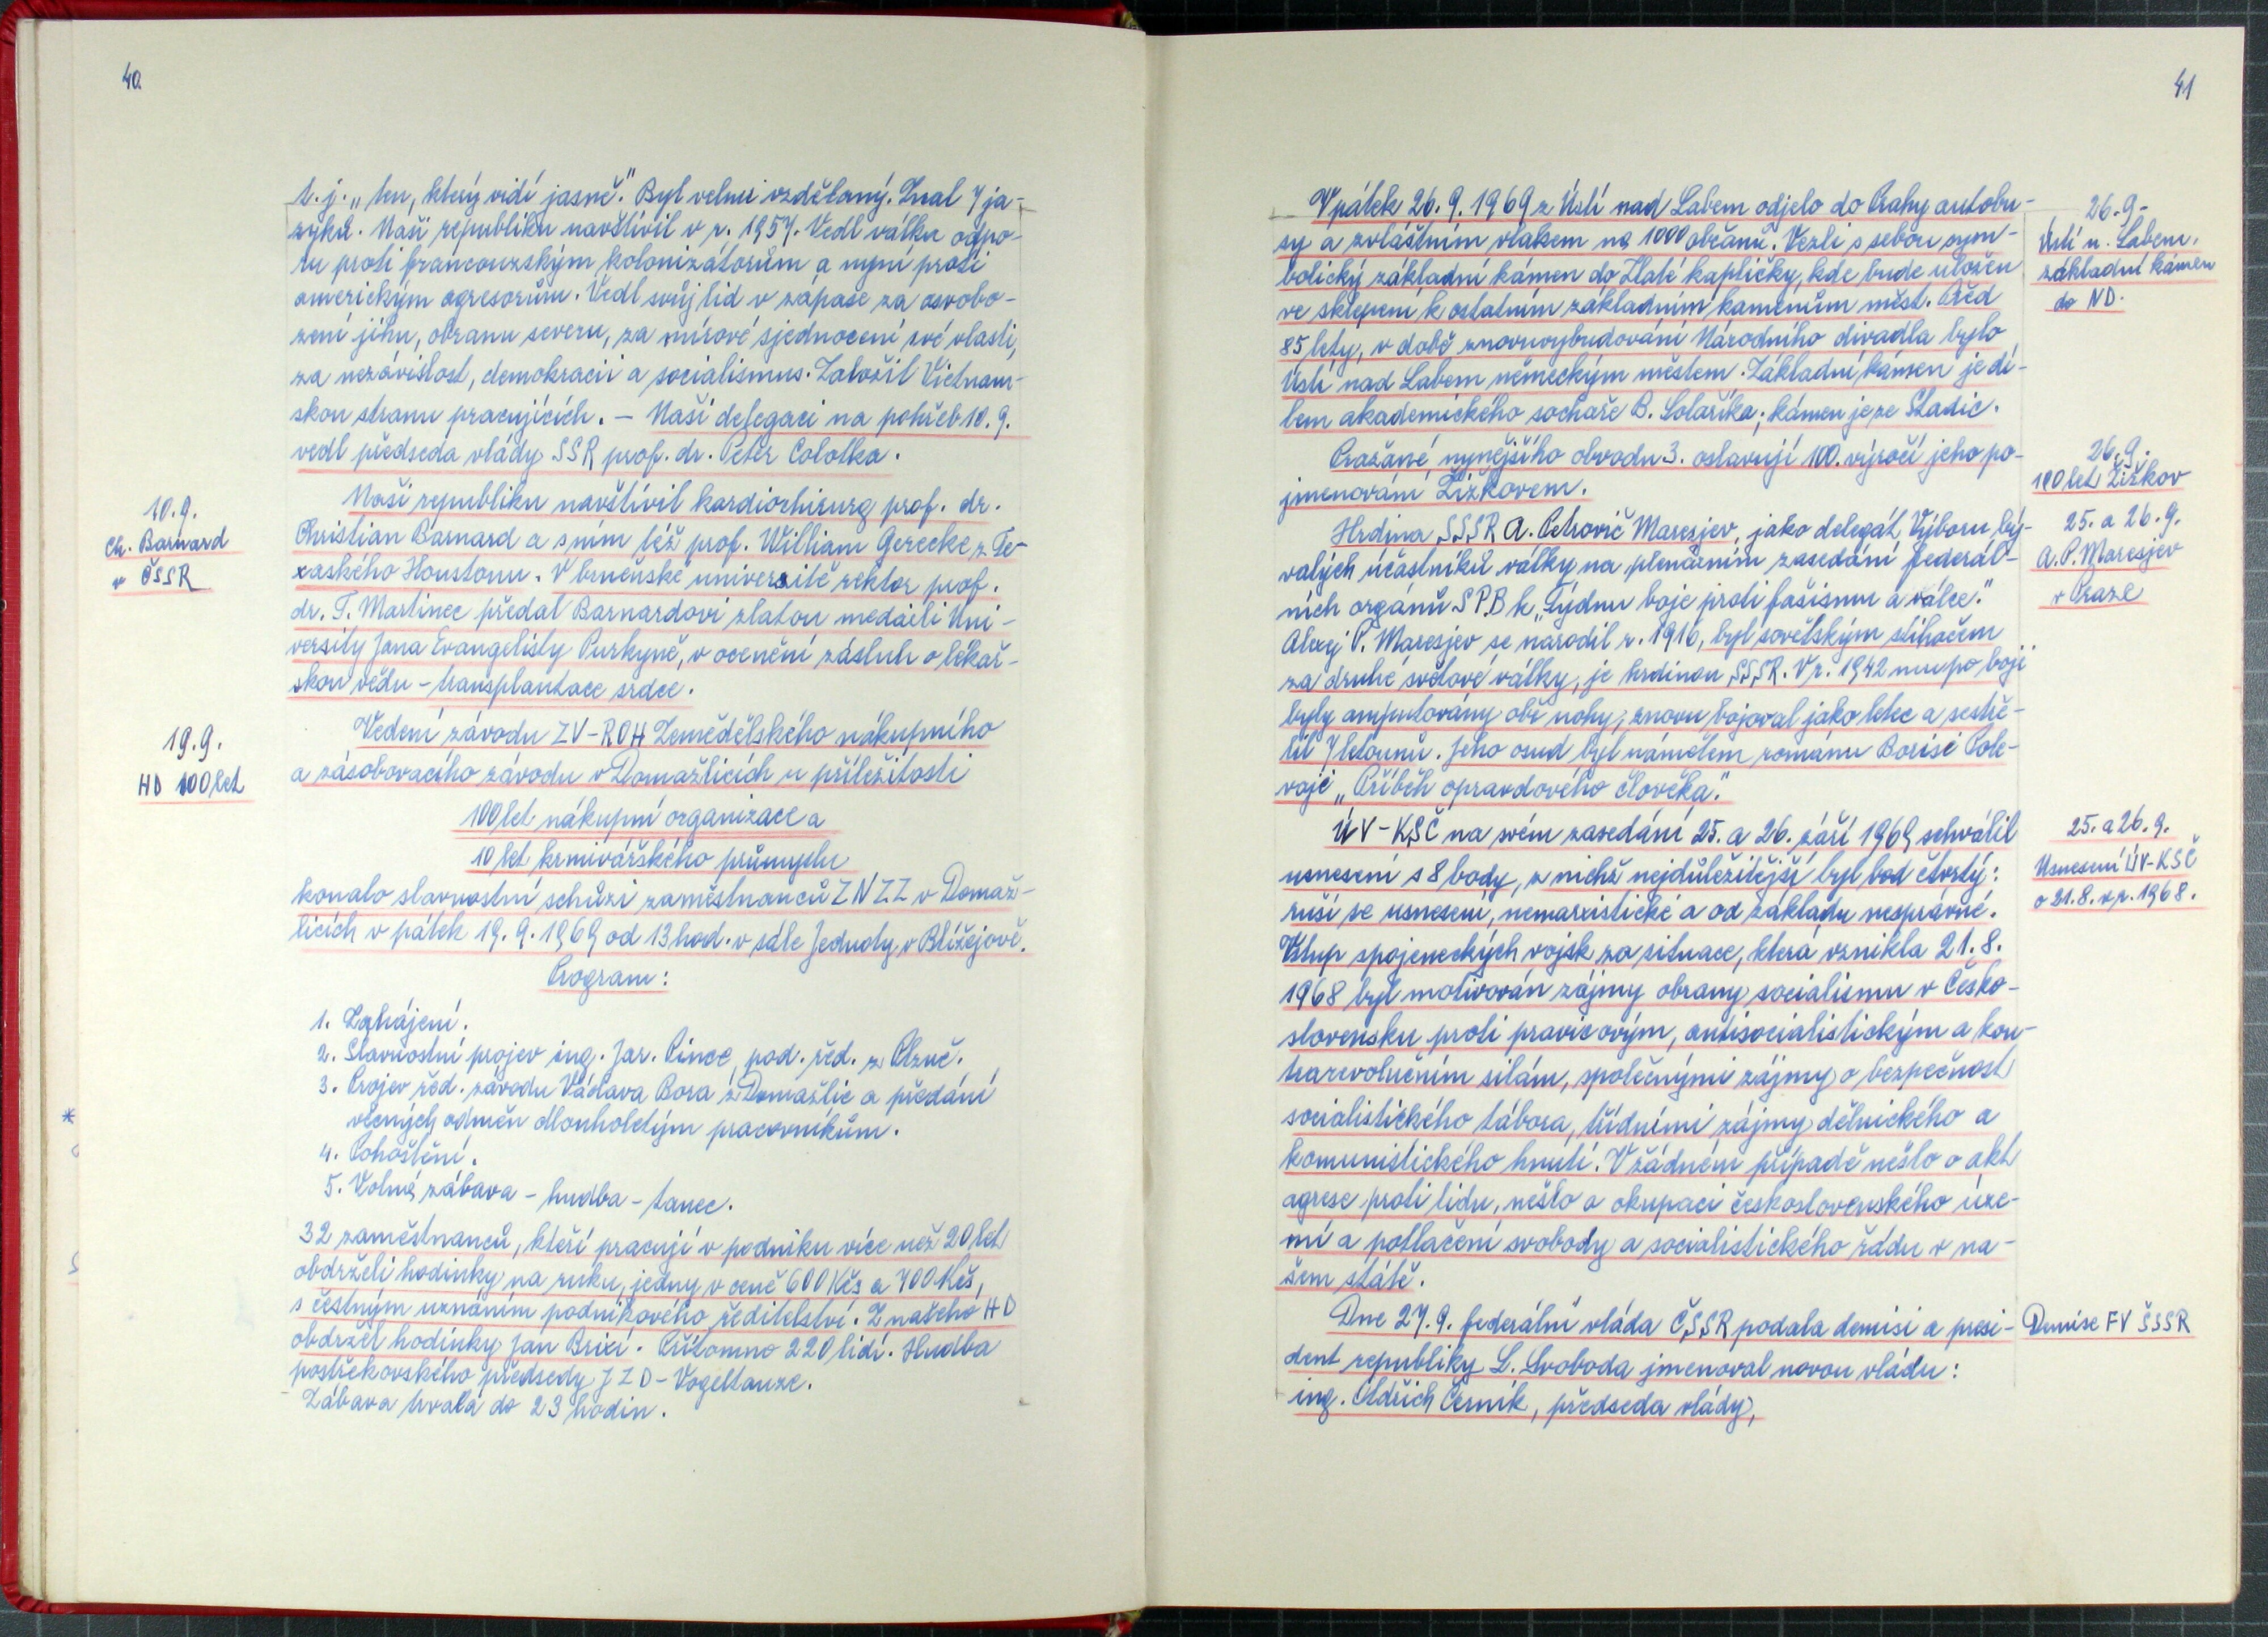 40.
t. j. „ten, který vidí jasně." Byl velmi vzdělaný. Znal 7 ja-
zyků. Naši republiku navštívil v r. 1957. Vedl válku odpo-
ru proti francouzským kolonizátorům a nyní proti
americkým agresorům. Vedl svůj lid v zápase za osvobo-
zení jihu, obranu severu, za mírové sjednocení své vlasti,
za nezávislost, demokracii a socialismus. Založil Vietnam-
skou stranu pracujících. – Naši delegaci na pohřeb 10. 9.
vedl předseda vlády SSR prof. dr. Peter Colotka.
10. 9.
Ch. Barnard
v ČSSR
Naši republiku navštívil kardiochirurg prof. dr.
Christian Barnard a s ním též prof. William Gerecke z Te-
xaského Houstonu. V brněnské universitě rektor prof.
dr. T. Martinec předal Barnardovi zlatou medaili Uni-
versity Jana Evangelisty Purkyně, v ocenění zásluh o lékař-
skou vědu – transplantace srdce.
19. 9.
HD 100 let
Vedení závodu ZV-ROH Zemědělského nákupního
a zásobovacího závodu v Domažlicích u příležitosti
100 let nákupní organizace a
10 let krmivářského průmyslu
konalo slavnostní schůzi zaměstnanců ZNZZ v Domaž-
licích v pátek 19. 9. 1969 od 13 hod. v sále Jednoty v Blížejově.
Program:
1. Zahájení.
2. Slavnostní projev ing. Jar. Pince, pod. řed. z Plzně.
3. Projev řed. závodu Václava Bora z Domažlic a předání
věcných odměn dlouholetým pracovníkům.
4. Pohoštění.
5. Volná zábava – hudba – tanec.
32 zaměstnanců, kteří pracují v podniku více než 20 let
obdrželi hodinky na ruku, jedny v ceně 600 Kčs a 700 Kčs,
s čestným uznáním podnikového ředitelství. Z našeho HD
obdržel hodinky Jan Brixi. Přítomno 220 lidí. Hudba
postřekovského předsedy JZD – Vogeltanze.
Zábava trvala do 23 hodin.
41
V pátek 26. 9. 1969 z Ústí nad Labem odjelo do Prahy autobu-
sy a zvláštním vlakem na 1000 občanů. Vezli s sebou sym-
bolický základní kámen do Zlaté kapličky, kde bude uložen
ve sklepení k ostatním základním kamenům měst. Před
85 lety, v době znovuvybudování Národního divadla bylo
Ústí nad Labem německým městem. Základní kámen je dí-
lem akademického sochaře B. Solaříka; kámen je ze Stadic.
26. 9.
Ústí n. Labem.
základní kámen
do ND.
Pražané nynějšího obvodu 3. oslavují 100. výročí jeho po-
jmenování Žižkovem.
26. 9.
100 let Žižkov
Hrdina SSSR A. Petrovič Maresjev, jako delegát Výboru bý-
valých účastníků války na plenárním zasedání federál-
ních orgánů SPB k „Týdnu boje proti fašismu a válce."
Alexej P. Maresjev se narodil r. 1916, byl sovětským stíhačem
za druhé světové války, je hrdinou SSSR. V r. 1942 mu po boji
byly amputovány obě nohy, znovu bojoval jako letec a sestře-
lil 7 letounů. Jeho osud byl námětem románu Borise Pole-
voje „Příběh opravdového člověka."
25. a 26. 9.
A. P. Maresjev
v Praze
ÚV-KSČ na svém zasedání 25. a 26. září 1969 schválil
usnesení s 8 body, z nichž nejdůležitější byl bod čtvrtý:
ruší se usnesení, nemarxistické a od základu nesprávné.
Vstup spojeneckých vojsk za situace, která vznikla 21. 8.
1968 byl motivován zájmy obrany socialismu v Česko-
slovensku proti pravicovým, antisocialistickým a kon-
trarevolučním silám, společnými zájmy o bezpečnost
socialistického tábora, třídními zájmy dělnického a
komunistického hnutí. V žádném případě nešlo o akt
agrese proti lidu, nešlo o okupaci československého úze-
mí a potlačení svobody a socialistického řádu v na-
šem státě.
25. a 26. 9.
Usnesení ÚV-KSČ
o 21. 8. v r. 1968.
Dne 27. 9. federální vláda ČSSR podala demisi a presi-
dent republiky L. Svoboda jmenoval novou vládu:
ing. Oldřich Černík, předseda vlády,
Demise FV ČSSR